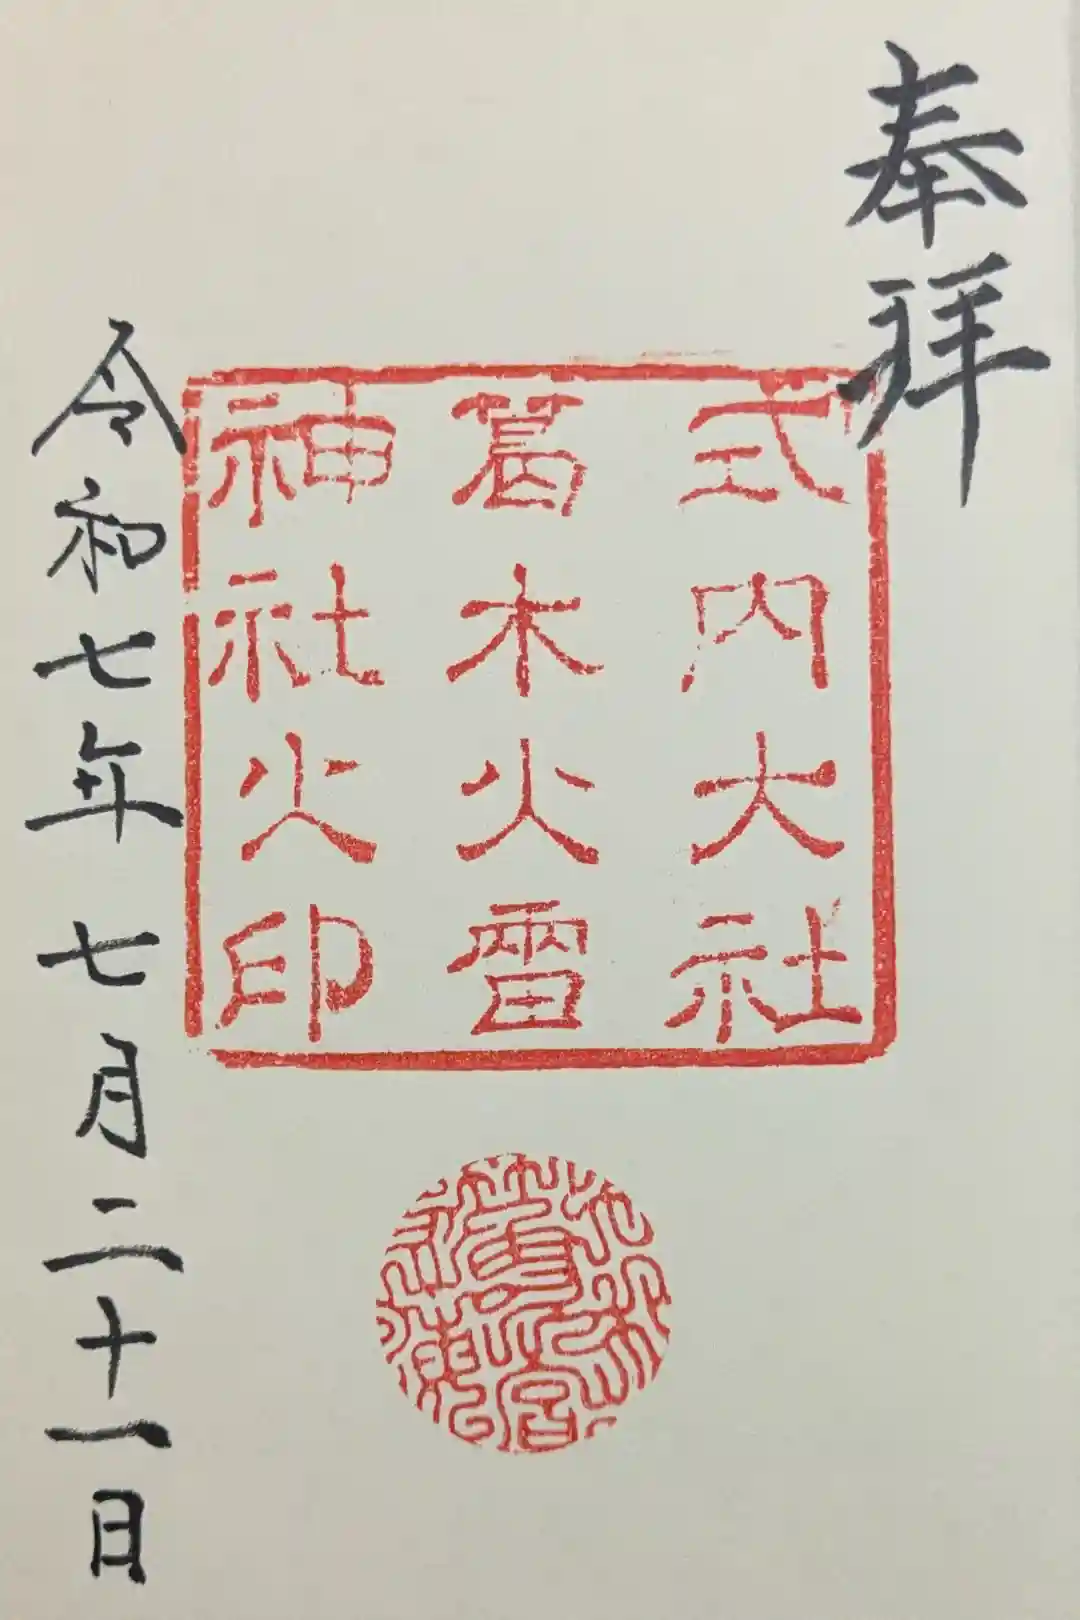 奉拝
式内大社
葛木火雷
神社之印
令和七年七月二十一日